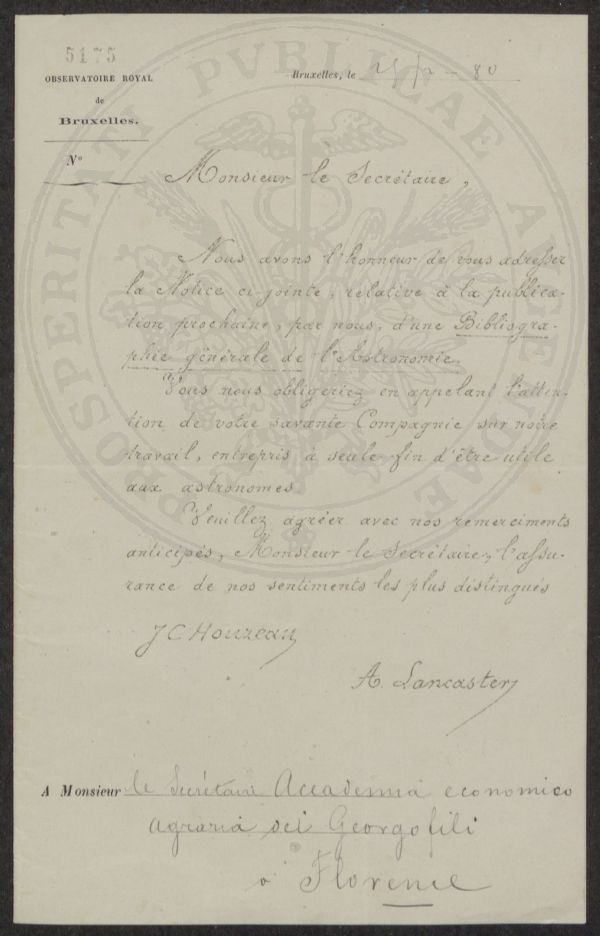 5175
OBSERVATOIRE ROYAL
de
Bruxelles.
N°
Bruxelles, le - 80
PROSPERITATI PVBLICAE AVGENDAE
Monsieur le Secrétaire,
Nous avons l'honneur de vous adresser
la Notice ci-jointe, relative à la publica-
tion prochaine, par nous, d'une Bibliogra-
phie générale de l'Astronomie.
Vous nous obligeriez en appelant l'atten-
tion de votre savante Compagnie sur notre
travail, entrepris à seule fin d'être utile
aux astronomes
Veuillez agréer avec nos remerciments
anticipés, Monsieur le Secrétaire, l'assu-
rance de nos sentiments les plus distingués
J C Houzeau
A. Lancaster
A Monsieur le Secrétaire Accademia economico
agraria dei Georgofili
à Florence